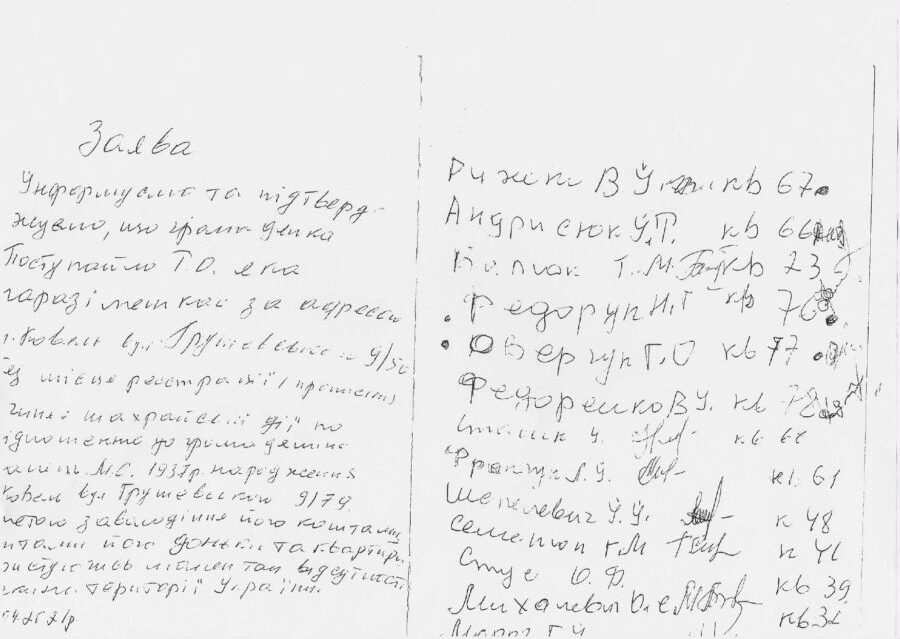 Заява
Інформуємо та підтверд-
жуємо, що громадянка
Поступайло Т.О. яка
наразі мешкає за адресою
м. Ковель вул. Грушевського 9/50
без місця реєстрації / прописки
чинить шахрайські дії по
відношенню до громадянина
М.С. 1937р. народження
Ковель вул Грушевського 9/79
метою заволодіння його коштами
його доньки та квартири
відсутності
території України.
В У. кв 67
Андрисюк У.П. кв 66
Т.М. кв 23
Федорук Н.Г кв 76
Оверчук Г.О кв 77
Федоренко В У. кв 78
У. кв 62
Л.У. кв 61
Шепелевич У.У. к 48
Семенюк Г.М к 41
Стус О.Ф. кв 39
Михалевич О.Є кв 32
Мороз Г.У